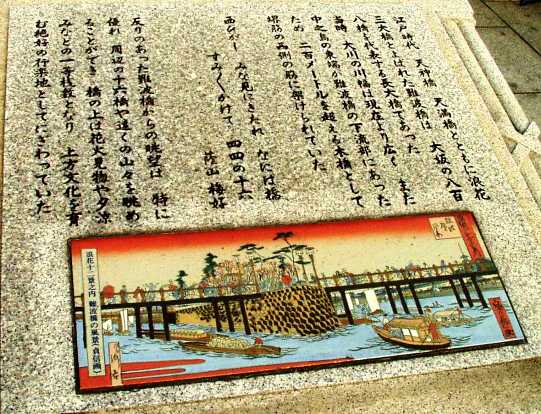 江戸時代 天神橋 天満橋とともに浪花
三大橋とよばれた難波橋は 大坂の八百
八橋を代表する長大橋であった
当時 大川の川幅は現在より広く また
中之島の東端が難波橋の下流部にあった
ため 二百メートルを超える木橋として
堺筋の西側の筋に架けられていた
西ひがし みな見にきたれ なにわ橋
すみずみかけて 四四の十六
蔭山 梅好
反りのあった難波橋からの眺望は 特に
優れ 周辺の十六橋や遠くの山々を眺め
ることができ 橋の上は花火見物や夕涼
みなどの一等桟敷となり 上方文化を育
む絶好の行楽地としてにぎわっていた
浪花十二景之内 難波橋の風景(貞信画)